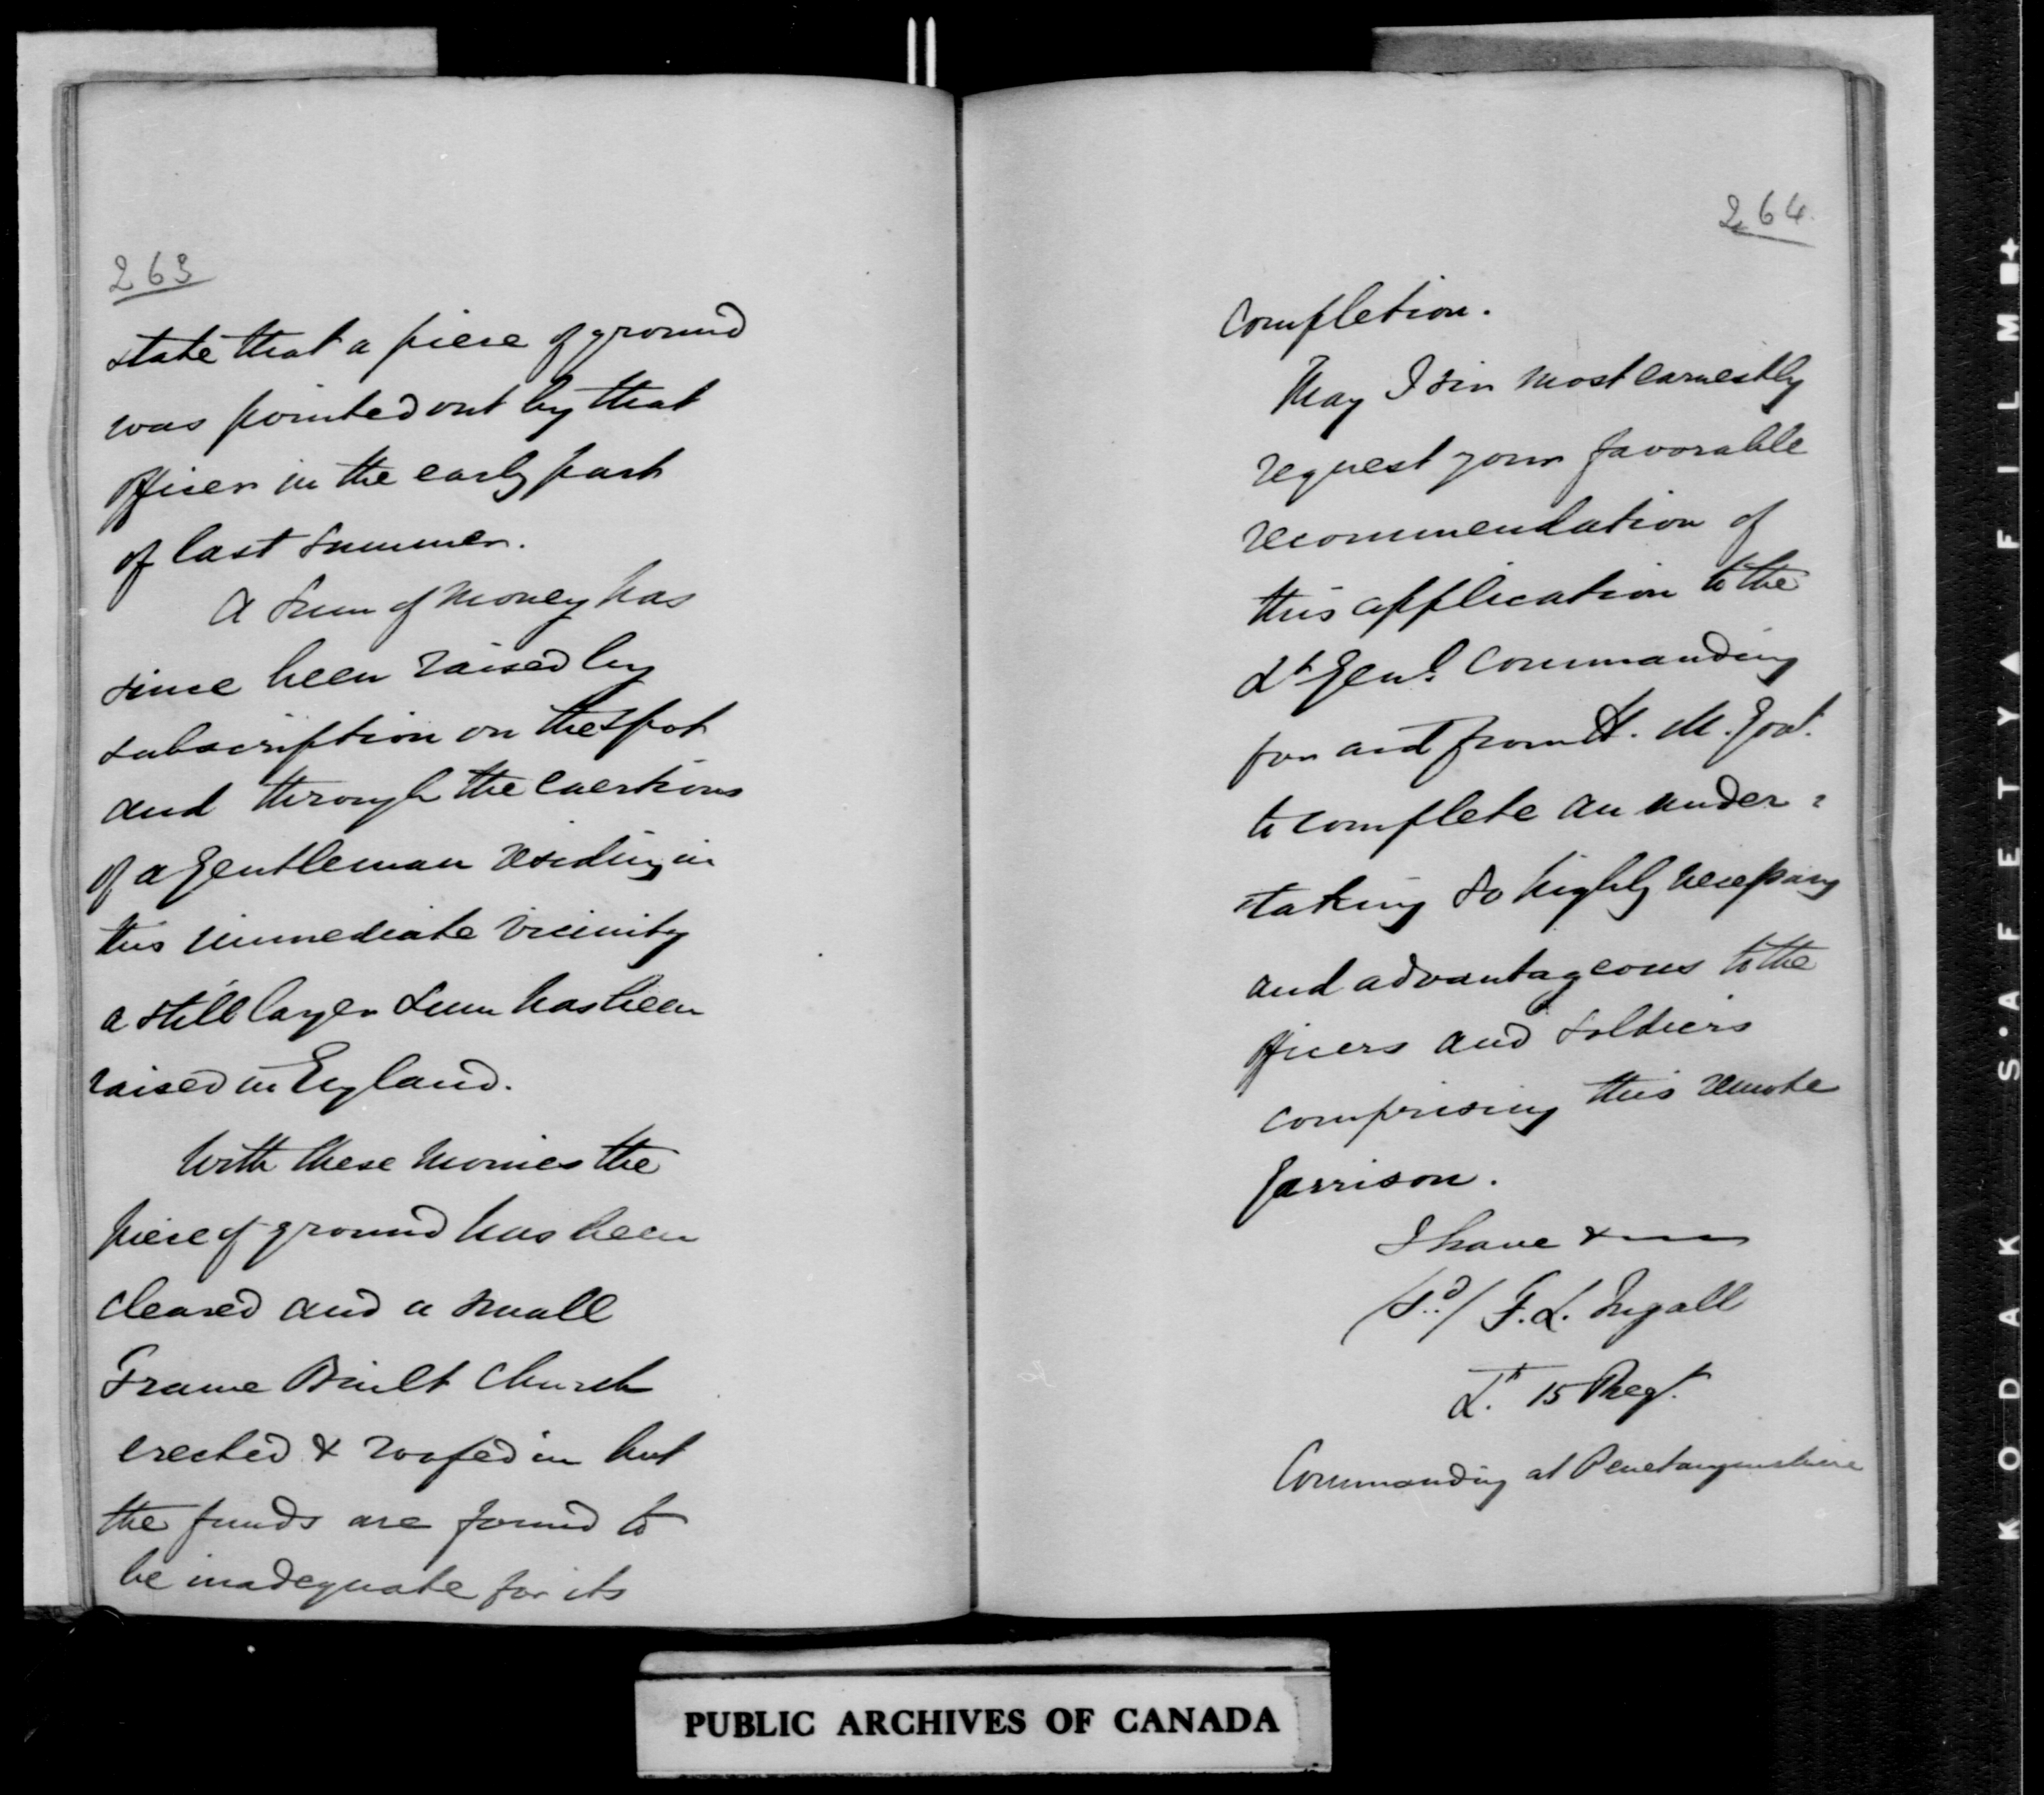 263
state that a piece of ground
was pointed out by that
officer in the early part
of last summer.
A sum of money has
since been raised by
subscription on the spot
and through the exertions
of a Gentleman residing in
this immediate vicinity
a still larger sum has been
raised in England.
With these monies the
piece of ground has been
cleared and a small
Frame Built Church
erected & roofed in but
the funds are found to
be inadequate for its
264.
completion.
May I Sir most earnestly
request your favorable
recommendation of
this application to the
Lt Genl. Commanding
for aid from H. M. Govt.
to complete an under =
=taking so highly necessary
and advantageous to the
officers and soldiers
comprising this remote
Garrison.
I have &
(Sd/ F. L. Ingall
Lt. 15 Regt.
Commanding at Penetanguishine
PUBLIC ARCHIVES OF CANADA
KODAK S'AFETY FILM